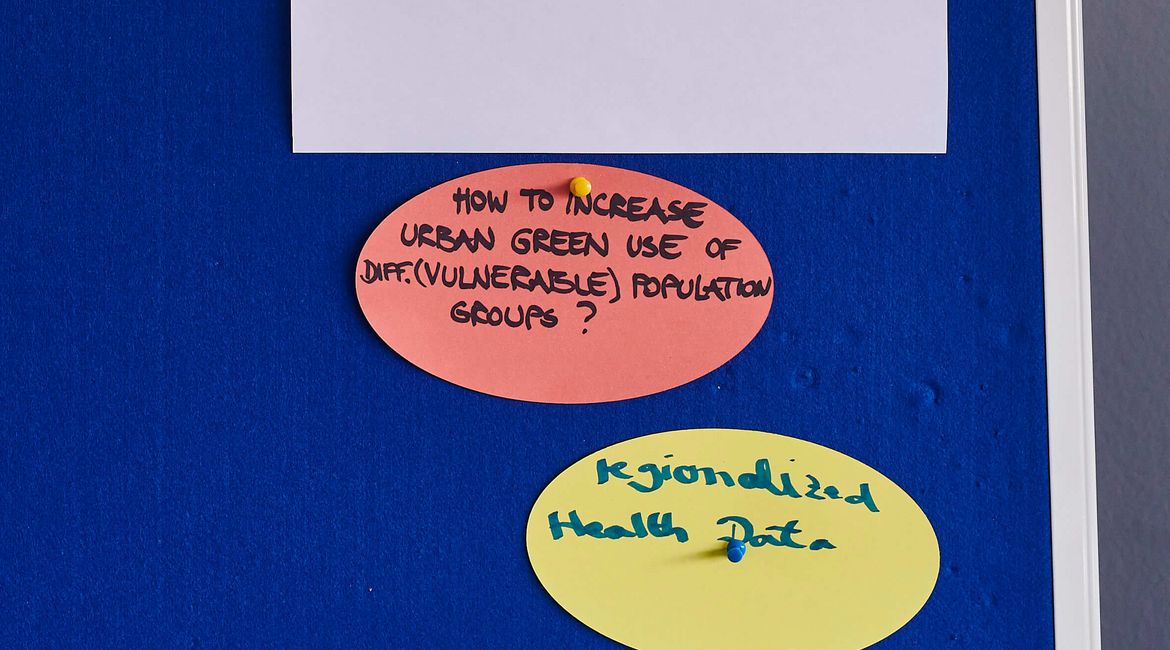 HOW TO INCREASE
URBAN GREEN USE OF
DIFF. (VULNERABLE) POPULATION
GROUPS ?
regionalized
Health Data